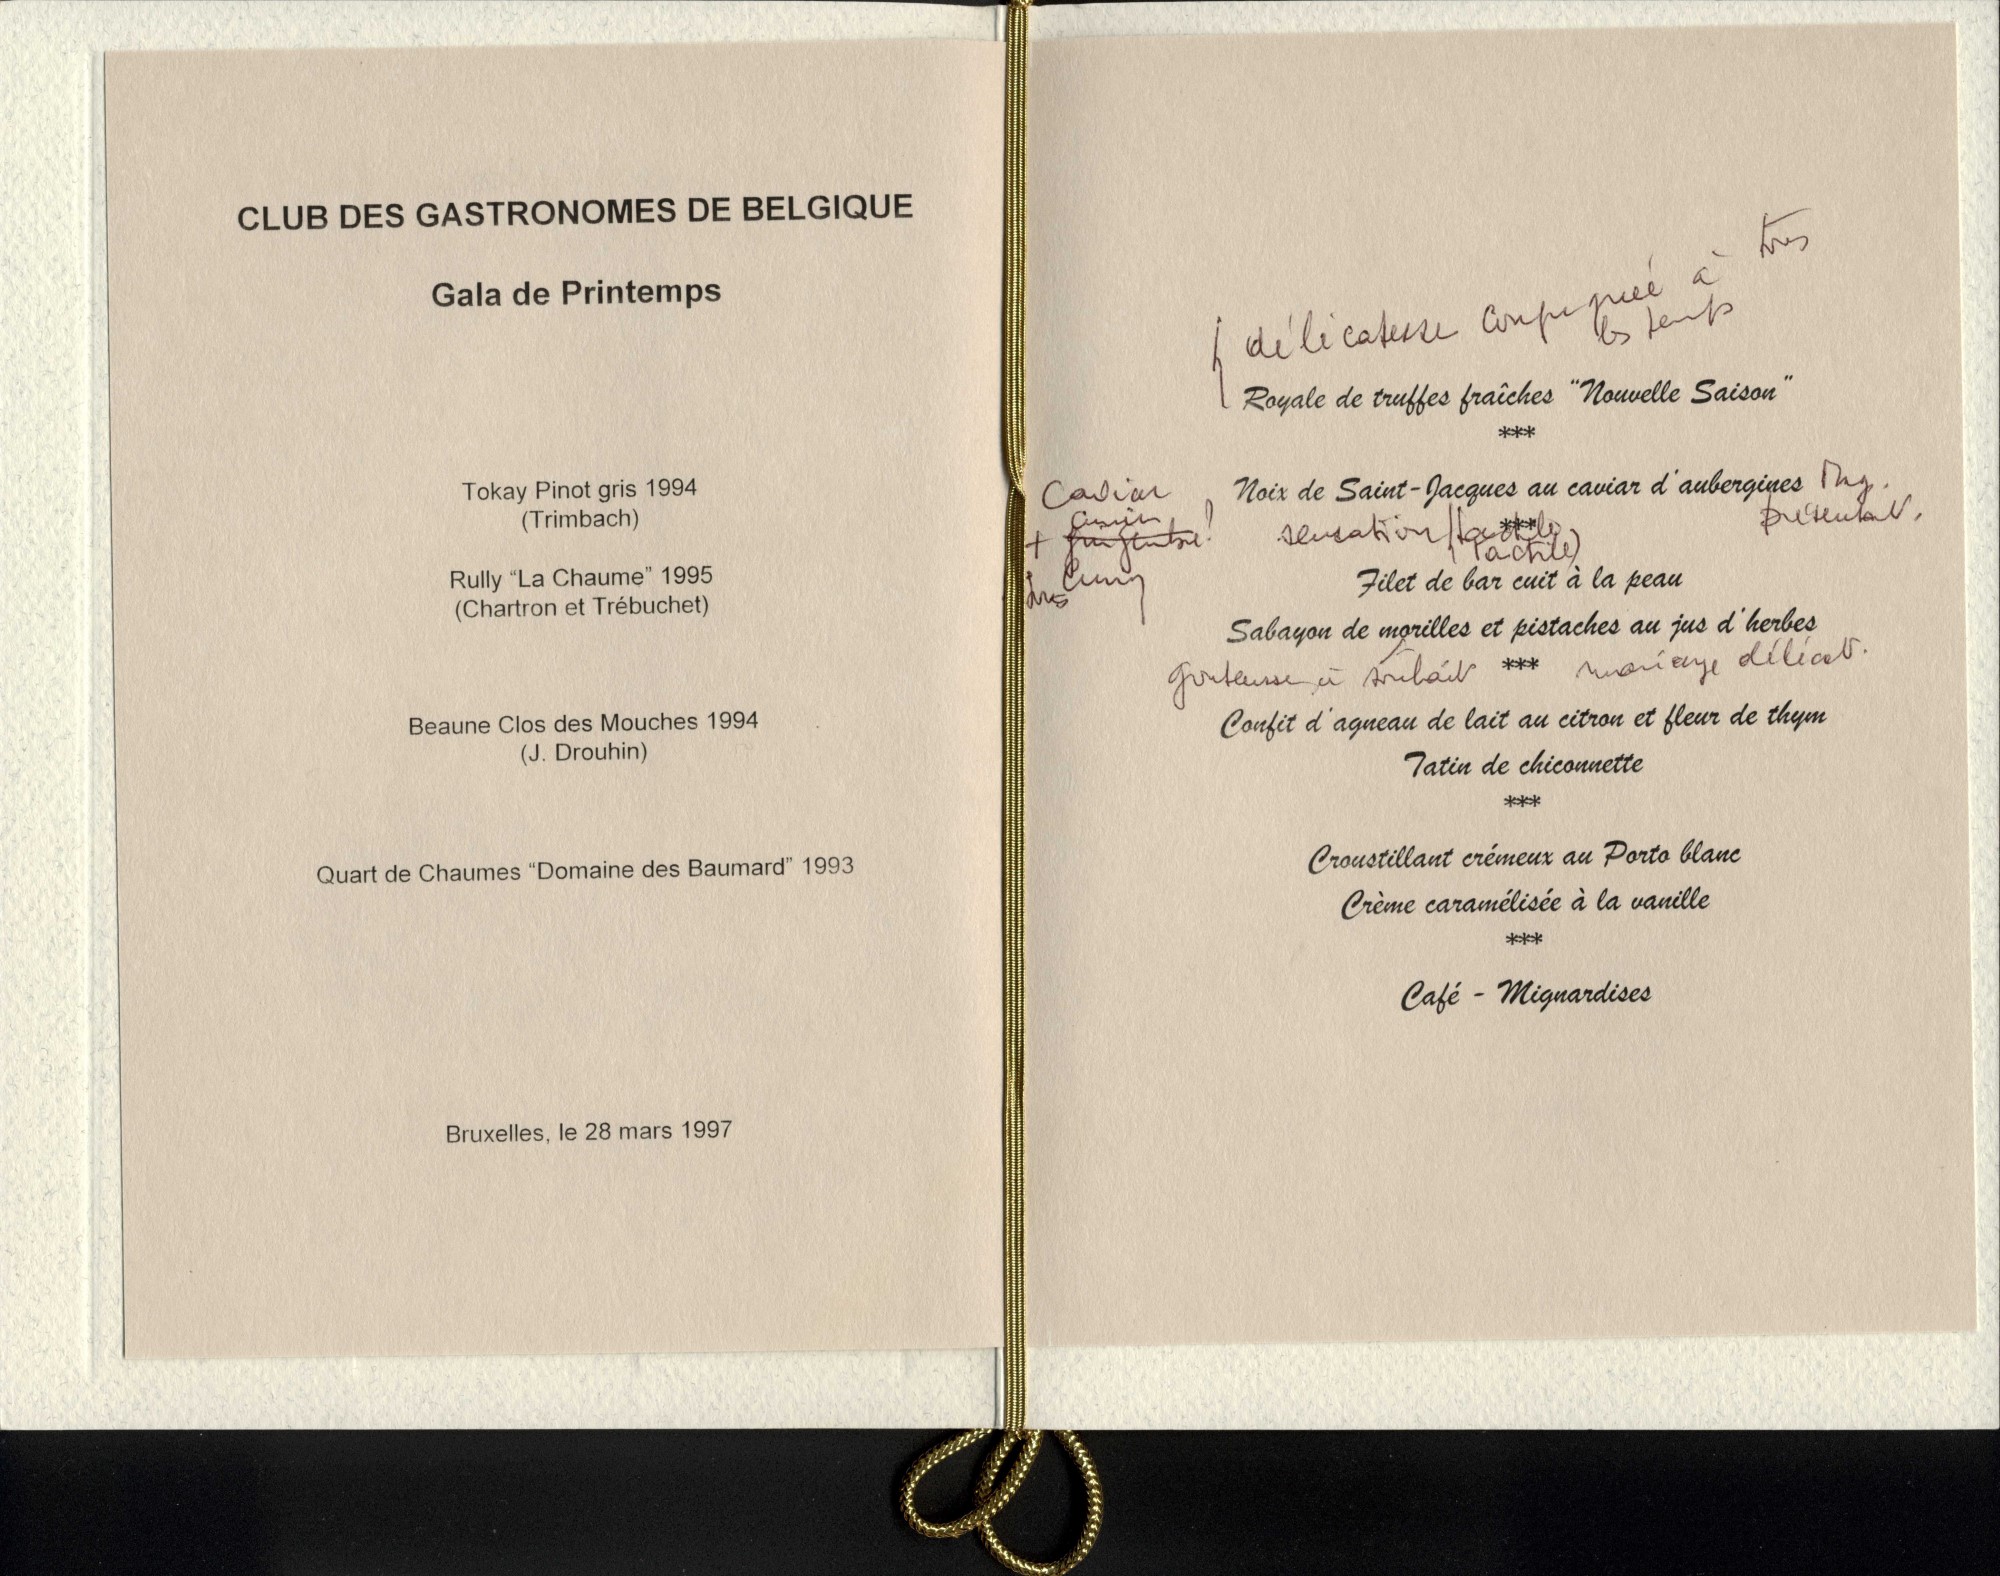 CLUB DES GASTRONOMES DE BELGIQUE
Gala de Printemps
Tokay Pinot gris 1994
(Trimbach)
Rully “La Chaume” 1995
(Chartron et Trébuchet)
Beaune Clos des Mouches 1994
(J. Drouhin)
Quart de Chaumes “Domaine des Baumard” 1993
Bruxelles, le 28 mars 1997
délicatesse conjuguée à tous
les temps
Royale de truffes fraîches “Nouvelle Saison”
***
Noix de Saint-Jacques au caviar d'aubergines
Caviar
présentat.
***
sensation tactile
(tactile)
Filet de bar cuit à la peau
Sabayon de morilles et pistaches au jus d'herbes
à souhait *** mariage délicat.
Confit d'agneau de lait au citron et fleur de thym
Tatin de chiconnette
***
Croustillant crémeux au Porto blanc
Crème caramélisée à la vanille
***
Café - Mignardises